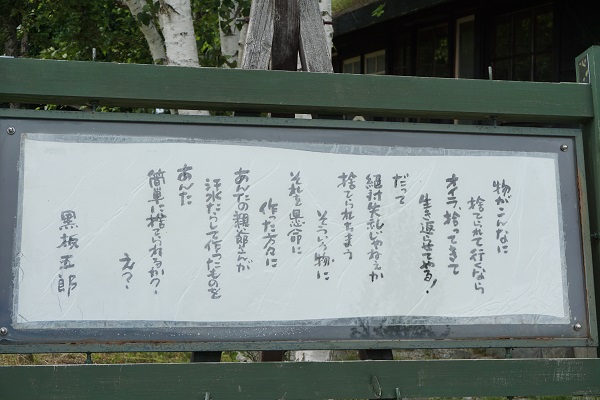 物がこんなに
捨てられて行くなら
オイラ、拾ってきて
生き返らせてやる!
だって
絶対失礼じゃねぇか
捨てられちまう
そういう物に
それを懸命に
作った方々に
あんたの親爺さんが
汗水たらして作ったものを
あんた
簡単に捨てられるか?
え?
黒板五郎